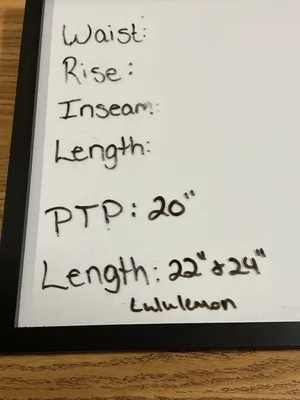 Waist:
Rise:
Inseam:
Length:
PTP: 20"
Length: 22" & 24"
Lululemon